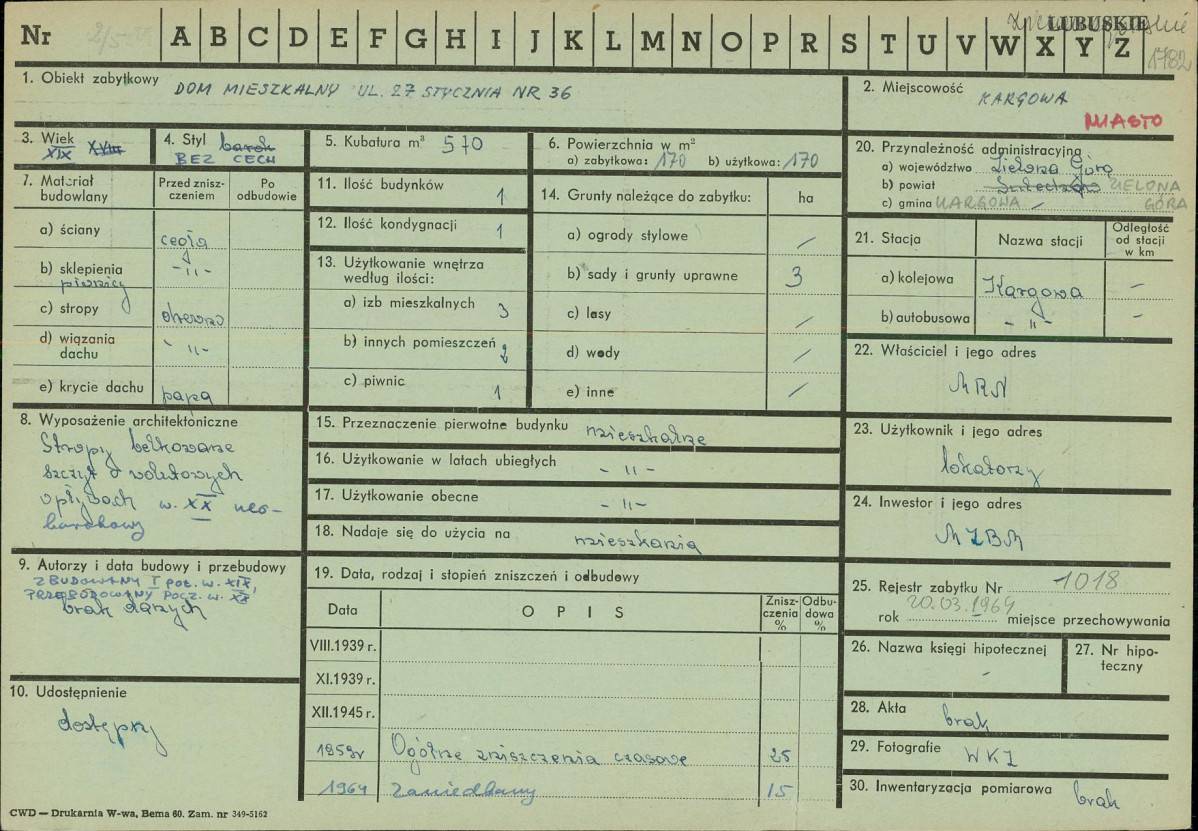 Nr A B C D E F G H I J K L M N O P R S T U V W X Y Z
LUBUSKIE
1782
1. Obiekt zabytkowy DOM MIESZKALNY UL. 27 STYCZNIA NR 36
2. Miejscowość KARGOWA
MIASTO
3. Wiek XVIII
XIX
4. Styl barok
BEZ CECH
5. Kubatura m³ 570
6. Powierzchnia w m²
a) zabytkowa: 170 b) użytkowa: 170
7. Materiał budowlany
Przed zniszczeniem
Po odbudowie
a) ściany cegła
b) sklepienia piwnicy -"-
c) stropy drewno
d) wiązania dachu -"-
e) krycie dachu papa
8. Wyposażenie architektoniczne
Stropy belkowane
szczyt o wolutowych
spływach w. XX neo-
barokowy
9. Autorzy i data budowy i przebudowy
ZBUDOWANY I POŁ. W. XIX,
PRZEBUDOWANY POCZ. W. XX
brak danych
10. Udostępnienie
dostępny
11. Ilość budynków 1
12. Ilość kondygnacji 1
13. Użytkowanie wnętrza
według ilości:
a) izb mieszkalnych 3
b) innych pomieszczeń 2
c) piwnic 1
14. Grunty należące do zabytku: ha
a) ogrody stylowe /
b) sady i grunty uprawne 3
c) lasy /
d) wody /
e) inne /
15. Przeznaczenie pierwotne budynku mieszkalne
16. Użytkowanie w latach ubiegłych -"-
17. Użytkowanie obecne -"-
18. Nadaje się do użycia na mieszkania
19. Data, rodzaj i stopień zniszczeń i odbudowy
Data OPIS Zniszczenia % Odbudowa %
VIII.1939 r.
XI.1939 r.
XII.1945 r.
1959r Ogólne zniszczenia czasowe 25
1964 Zaniedbany 15
20. Przynależność administracyjna
a) województwo Zielona Góra
b) powiat Sulechów ZIELONA
c) gmina KARGOWA / GÓRA
21. Stacja
Nazwa stacji
Odległość
od stacji
w km
a) kolejowa Kargowa -
b) autobusowa -"- -
22. Właściciel i jego adres
MRN
23. Użytkownik i jego adres
lokatorzy
24. Inwestor i jego adres
MZBM
25. Rejestr zabytku Nr 1018
rok 20.03.1964 miejsce przechowywania
26. Nazwa księgi hipotecznej
-
27. Nr hipo-
teczny
28. Akta brak
29. Fotografie WKZ
30. Inwentaryzacja pomiarowa brak
CWD — Drukarnia W-wa, Bema 60. Zam. nr 349-5162